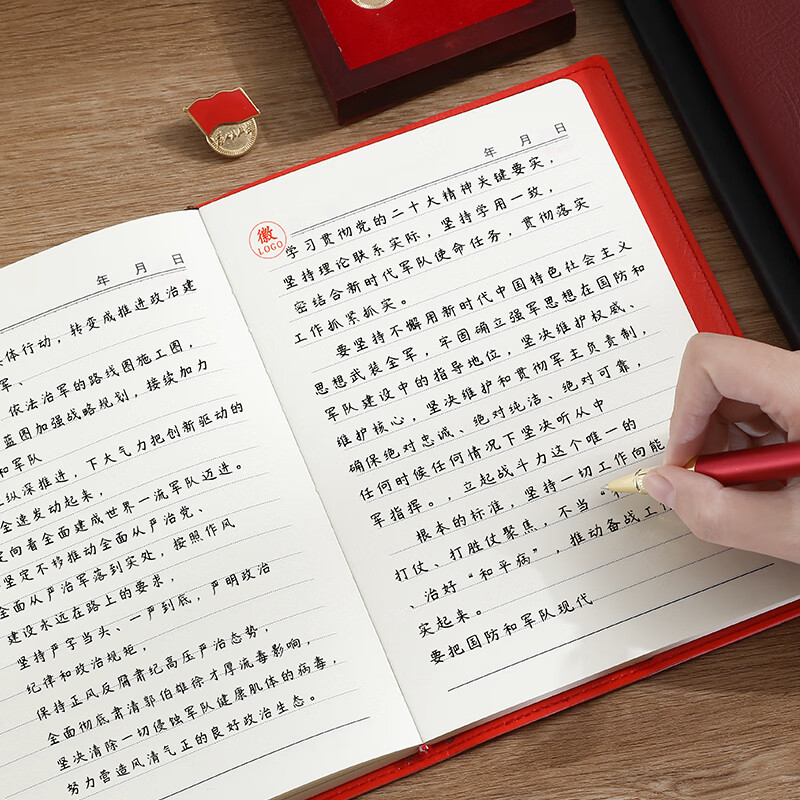 年 月 日
体行动，转变成推进政治建
军、
依法治军的路线图施工图，
蓝图加强战略规划，接续加力
和军队
纵深推进，下大气力把创新驱动的
全速发动起来，
定向着全面建成世界一流军队迈进。
坚定不移推动全面从严治党、
全面从严治军落到实处，按照作风
建设永远在路上的要求，
坚持严字当头、一严到底，严明政治
纪律和政治规矩，
保持正风反腐肃纪高压严治态势，
全面彻底肃清郭伯雄徐才厚流毒影响，
坚决清除一切侵蚀军队健康肌体的病毒，
努力营造风清气正的良好政治生态。
年 月 日
徽
LOGO
学习贯彻党的二十大精神关键要实，
坚持理论联系实际，坚持学用一致，
密结合新时代军队使命任务，贯彻落实
工作抓紧抓实。
要坚持不懈用新时代中国特色社会主义
思想武装全军，牢固确立强军思想在国防和
军队建设中的指导地位，坚决维护权威、
维护核心，坚决维护和贯彻军主负责制，
确保绝对忠诚、绝对纯洁、绝对可靠，
任何时候任何情况下坚决听从中
军指挥。，立起战斗力这个唯一的
根本的标准，坚持一切工作向能
打仗、打胜仗聚焦，不当“
、治好“和平病”，推动备战工
实起来。
要把国防和军队现代